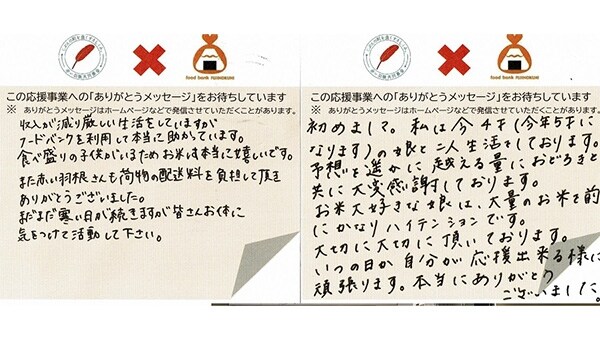 food bank FUJINOKUNI
この応援事業への「ありがとうメッセージ」をお待ちしています
※ ありがとうメッセージはホームページなどで発信させていただくことがあります。
収入が減り厳しい生活をしていますが
フードバンクを利用して本当に助かっています。
食べ盛りの子供がいるためお米は本当に嬉しいです。
また赤い羽根さんも荷物の配送料を負担して頂き
ありがとうございました。
まだまだ寒い日が続きますが皆さんお体に
気をつけて活動して下さい。
food bank FUJINOKUNI
この応援事業への「ありがとうメッセージ」をお待ちしています
※ ありがとうメッセージはホームページなどで発信させていただくことがあります。
初めまして。私は今4才(今年5才に
なります)の娘と二人生活をしております。
予想を遥かに越える量におどろきと
共に大変感謝しております。
お米大好きな娘は、大量のお米を前
にかなりハイテンションです。
大切に大切に頂いております。
いつの日か自分が応援出来る様に
頑張ります。本当にありがとう
ございました。